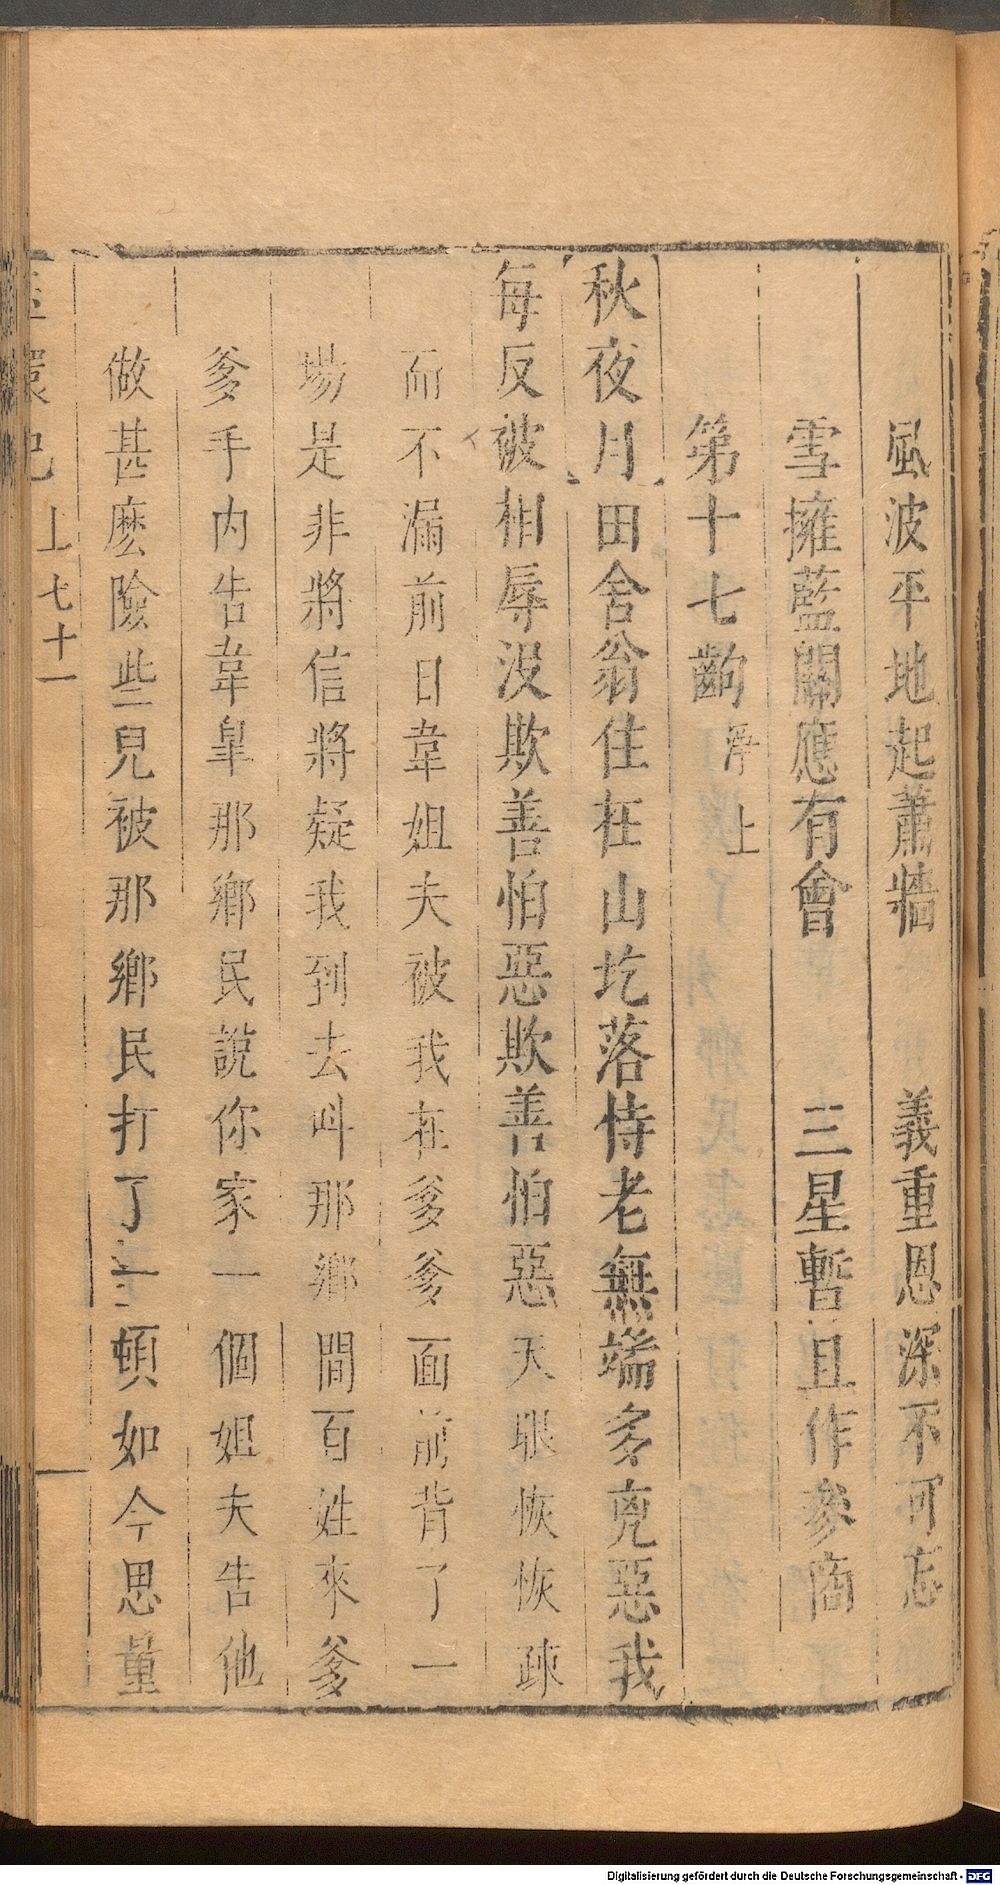 風波平地起蕭牆　義重恩深不可忘
雪擁藍關應有會　三星暫且作參商
第十七齣 淨上
秋夜月田舍翁住在山圪落恃老無端多兇惡我
每反被相辱沒欺善怕惡欺善怕惡天眼恢恢疎
而不漏前日韋姐夫被我在爹爹面前背了一
場是非將信將疑我到去呌那鄉間百姓來爹
爹手内告韋臯那鄉民說你家一個姐夫告他
做甚麽險些兒被那鄉民打了一頓如今思量
玉環記 上 七十一
Digitalisierung gefördert durch die Deutsche Forschungsgemeinschaft - DFG